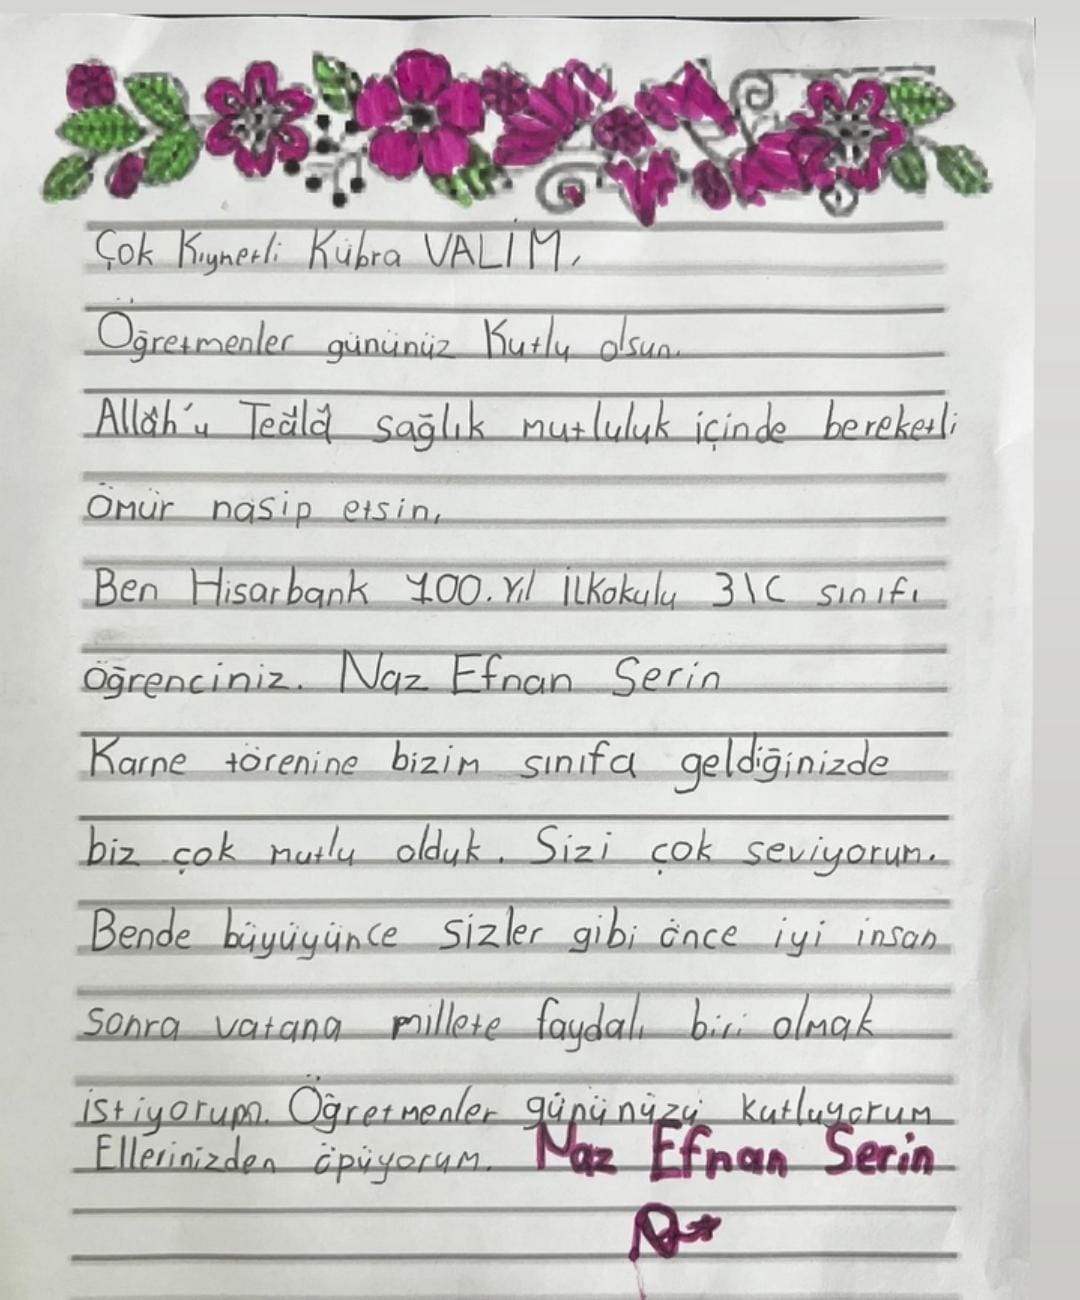 Çok Kıymetli Kübra VALİM,
Öğretmenler gününüz Kutlu olsun.
Allâh'u Teâlâ sağlık mutluluk içinde bereketli
ömür nasip etsin,
Ben Hisarbank 100. Yıl İlkokulu 3\C sınıfı
öğrenciniz. Naz Efnan Serin
Karne törenine bizim sınıfa geldiğinizde
biz çok mutlu olduk. Sizi çok seviyorum.
Bende büyüyünce sizler gibi önce iyi insan
sonra vatana millete faydalı biri olmak
istiyorum. Öğretmenler gününüzü kutluyorum
Ellerinizden öpüyorum. Naz Efnan Serin